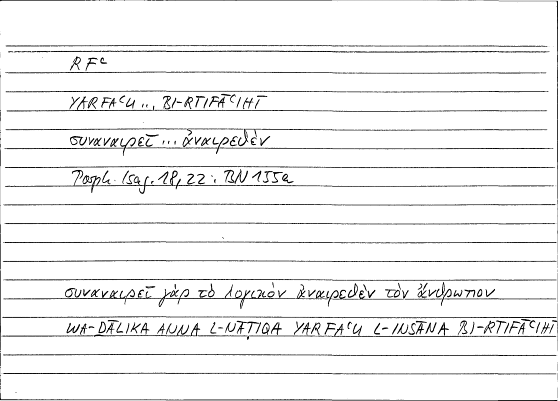 RFᶜ
YARFAᶜU ... BI-RTIFĀᶜIHĪ
συναναιρεῖ ... ἀναιρεθὲν
Porph. Isag. 18,22 : BN 155a
συναναιρεῖ γὰρ τὸ λογικὸν ἀναιρεθὲν τὸν ἄνθρωπον
WA-ḎĀLIKA ANNA L-NĀṬIQA YARFAᶜU L-INSĀNA BI-RTIFĀᶜIHĪ